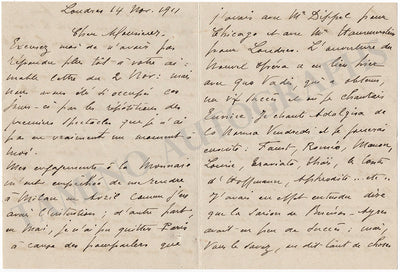 Londres 14 Nov. 1911
Cher Monsieur,
Excusez moi de n'avoir pas
répondu plus tôt à votre ai-
mable lettre du 2 Nov: mais
nous avons été si occupés ces
jours-ci par les répétitions des
premiers spectacles que je n'ai
pas eu vraiment un moment
à moi.
Mes engagements à la Monnaie
m'ont empêchée de me rendre
à Milan en Avril comme j'en
avais l'intention; d'autre part,
en Mai, je n'ai pu quitter Paris
à cause des pourparlers que
j'avais avec Mr Dippel pour
Chicago et avec Mr Hammerstein
pour Londres. L'ouverture du
Nouvel Opéra a eu lieu hier
avec Quo Vadis, qui a obtenu
un vif succès et où je chantais
Je chante Adalgisa de
Norma Vendredi et je ferai
ensuite: Faust, Roméo, Manon,
Louise, Traviata, Thaïs, les Contes
d'Hoffmann, Aphrodite... etc..
J'avais en effet entendu dire
que la saison de Buenos-Ayres
avait eu peu de succès; mais,
vous le savez, on dit tant de choses
TAMINO AUTOGRAPHS